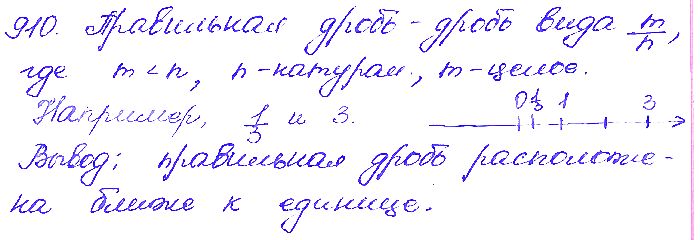 910. Правильная дробь - дробь вида m/n,
где m < n, n-натурал., m-целое.
Например, 1/3 и 3. 0 1/3 1 3
Вывод: правильная дробь расположе-
на ближе к единице.